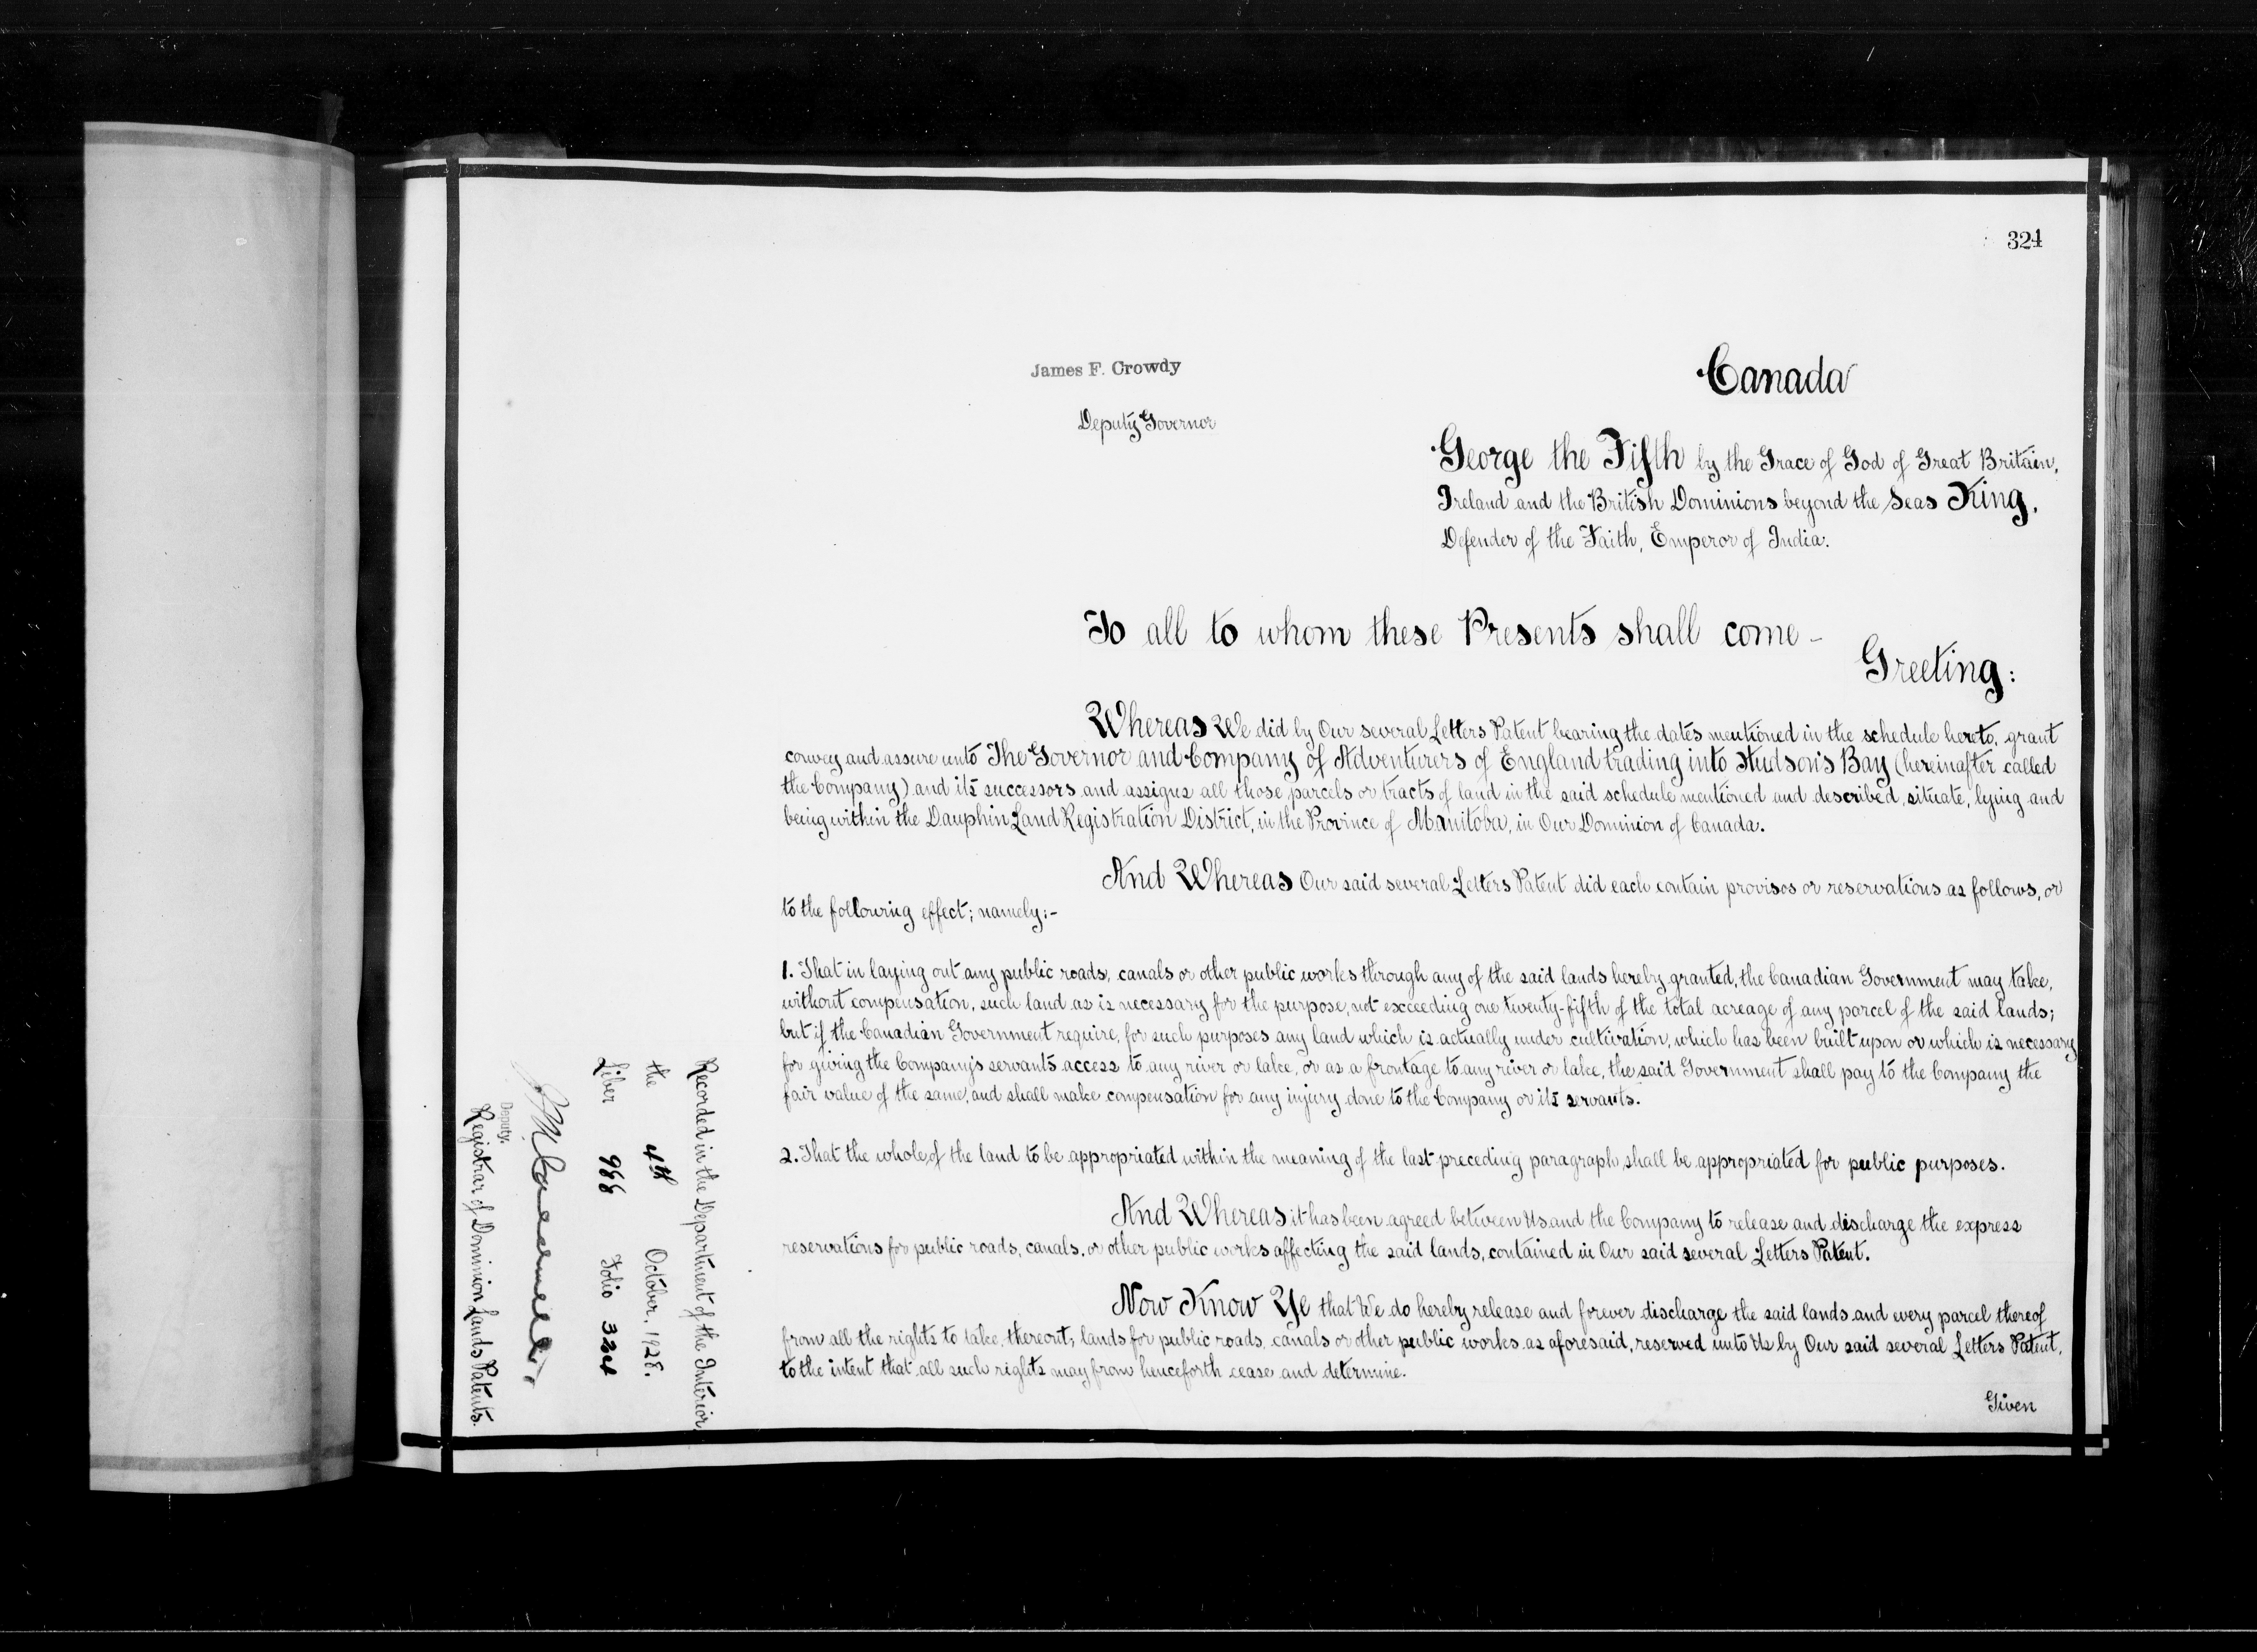 324
James F. Crowdy
Deputy Governor
Canada
George the Fifth by the Grace of God of Great Britain,
Ireland and the British Dominions beyond the Seas King,
Defender of the Faith, Emperor of India.
To all to whom these Presents shall come -
Greeting:
Whereas We did by Our several Letters Patent bearing the dates mentioned in the schedule hereto, grant
convey and assure unto The Governor and Company of Adventurers of England trading into Hudson's Bay (hereinafter called
the Company) and its successors and assigns all those parcels or tracts of land in the said schedule mentioned and described, situate, lying and
being within the Dauphin Land Registration District, in the Province of Manitoba, in Our Dominion of Canada.
And Whereas Our said several Letters Patent did each contain provisos or reservations as follows, or
to the following effect; namely:-
1. That in laying out any public roads, canals or other public works through any of the said lands hereby granted, the Canadian Government may take,
without compensation, such land as is necessary for the purpose, not exceeding one twenty-fifth of the total acreage of any parcel of the said lands;
but if the Canadian Government require, for such purposes any land which is actually under cultivation, which has been built upon or which is necessary
for giving the Company's servants access to any river or lake, or as a frontage to any river or lake, the said Government shall pay to the Company the
fair value of the same, and shall make compensation for any injury done to the Company or its servants.
2. That the whole of the land to be appropriated within the meaning of the last preceding paragraph shall be appropriated for public purposes.
And Whereas it has been agreed between Us and the Company to release and discharge the express
reservations for public roads, canals, or other public works affecting the said lands, contained in Our said several Letters Patent.
Now Know Ye that We do hereby release and forever discharge the said lands and every parcel thereof
from all the rights to take, thereout, lands for public roads, canals or other public works as aforesaid, reserved unto Us by Our said several Letters Patent,
to the intent that all such rights may from henceforth cease and determine.
Given
Recorded in the Department of the Interior
the 4th October, 1928.
Liber 998 Folio 324
Deputy.
Registrar of Dominion Lands Patents.